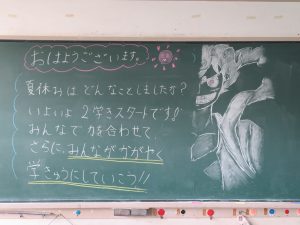 おはようございます。
夏休みは どんなことしましたか？
いよいよ 2学きスタートです!!
みんなで 力を合わせて、
さらに、みんながかがやく
学きゅうにしていこう!!